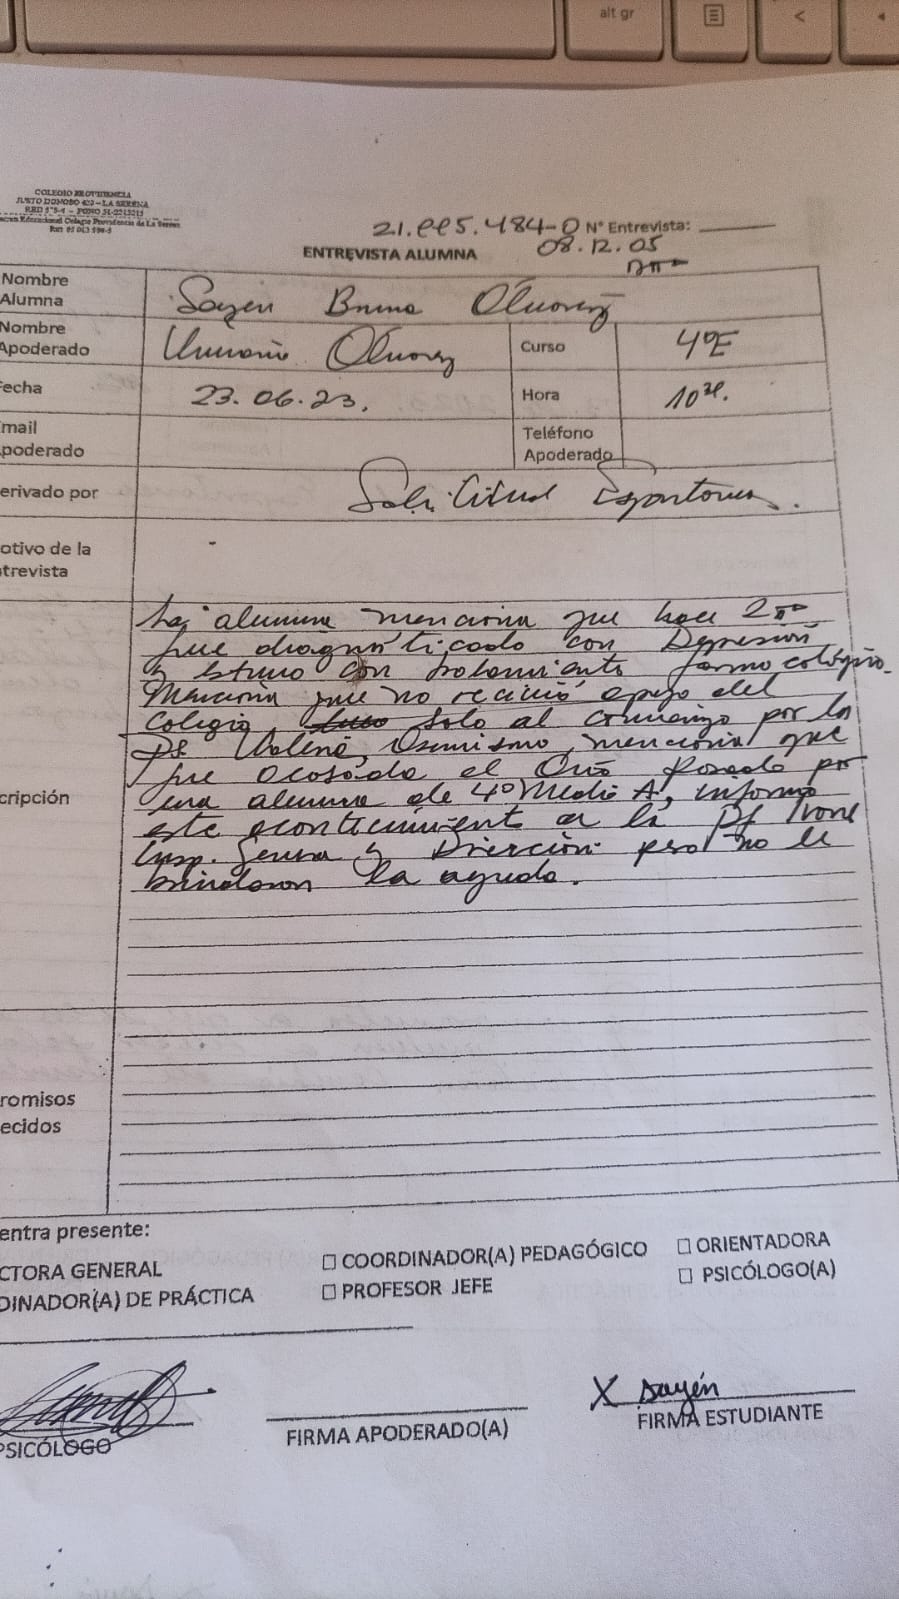 alt gr
<
COLEGIO PROVIDENCIA
JUSTO DONOSO 420 - LA SERENA
RBD 575-4 - FONO 51-2213215
Educacional Colegio Providencia de La Serena
21. 484-0 N° Entrevista:
ENTREVISTA ALUMNA 08.12.05
Nombre
Alumna Sayen Bruna
Nombre
Apoderado Curso 4ºE
echa 23.06.23. Hora
mail
poderado Teléfono
Apoderado
erivado por Solicitud Espontanea.
otivo de la
trevista -
La alumna menciona que hace 2
fue diagnosticado con Depresión
y estuvo con tratamiento farmacológico.
Menciona que no recibió apoyo del
colegio, solo al comienzo por la
Ps. asimismo, menciona que
fue acosada el año pasado por
cripción
una alumna de 4º Medio A, informó
este acontecimiento a la Ivone
Insp. y Dirección pero no le
brindaron la ayuda.
romisos
ecidos
entra presente:
CTORA GENERAL □ COORDINADOR(A) PEDAGÓGICO □ ORIENTADORA
DINADOR(A) DE PRÁCTICA □ PROFESOR JEFE □ PSICÓLOGO(A)
X Sayén
PSICÓLOGO FIRMA APODERADO(A) FIRMA ESTUDIANTE